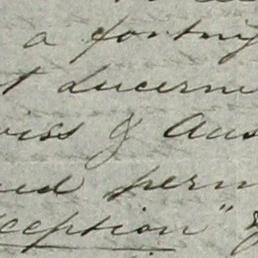 a fortnig
t Lucerne
wiss & Aus
ed perm
ception"